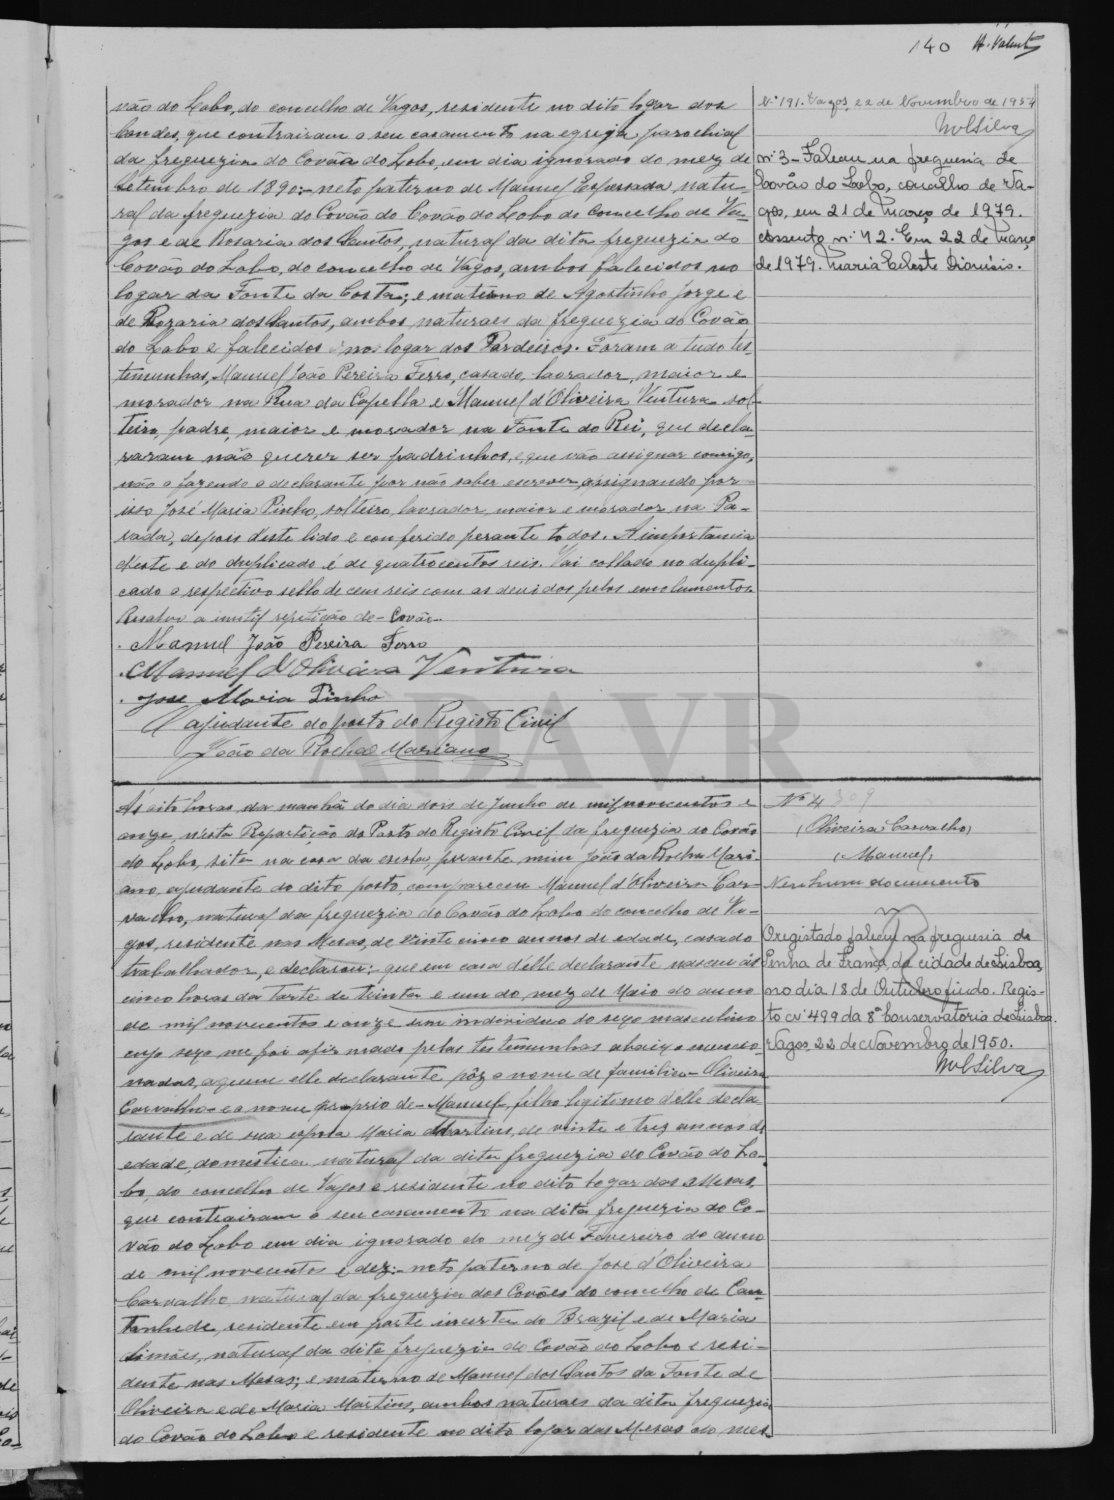 140 A. Valente
vão do Lobo, do concelho de Vagos, residente no dito logar dos
Condes, que contrairam o seu casamento na egreja parochial
da freguezia do Covão do Lobo, em dia ignorado do mez de
Setembro de 1890:- neto paterno de Manuel Espassada, natu-
ral da freguezia do Covão do Covão do Lobo do concelho de Va-
gos e de Rosaria dos Santos, natural da dita freguezia do
Covão do Lobo, do concelho de Vagos, ambos falecidos no
logar da Fonte da Costa; e materno de Agostinho Jorge e
de Rozaria dos Santos, ambos naturaes da freguezia do Covão
do Lobo e falecidos no logar dos Pardeiros. Foram a tudo tes-
temunhas, Manuel João Pereira Ferro, casado, lavrador, maior e
morador na Rua da Capella e Manuel d'Oliveira Ventura sol-
teiro, padre, maior e morador na Fonte do Rei, que decla-
raram não querer ser padrinhos, e que vão assignar comigo,
não o fazendo o declarante por não saber escrever assignando por
isso José Maria Pinho, solteiro, lavrador, maior e morador na Pa-
rada, depois deste lido e conferido perante todos. A importancia
d'este e do duplicado é de quatrocentos reis. Vai collado no dupli-
cado o respectivo sello de cem reis com as devidos pelos emolumentos.
Resalvo a inutil repetição de - Covão -
Manuel João Pereira Ferro
Manuel d'Oliveira Ventura
José Maria Pinho
O ajudante do posto do Registo Civil
João da Rocha Mariano
Nº 191. Vagos, 22 de Novembro de 1954
MCSilva
nº 3 - Faleceu na freguesia de
Covão do Lobo, concelho de Va-
gos, em 21 de Março de 1979.
Assento nº 42. Em 22 de Março
de 1979. Maria Celeste Dionisio.
ADAVR
A's oito horas da manhã do dia dois de Junho de mil novecentos e
onze, n'esta Repartição do Posto do Registo Civil da freguezia do Covão
do Lobo, sita na casa da escola, perante mim João da Rocha Mari-
ano, ajudante do dito posto, compareceu Manuel d'Oliveira Car-
valho, natural da freguezia do Covão do Lobo do concelho de Va-
gos, residente nas Mesas, de vinte cinco annos de edade, casado
trabalhador, e declarou: que em casa d'elle declarante nasceu ás
cinco horas da tarde de trinta e um do mez de Maio do anno
de mil novecentos e onze um individuo do sexo masculino
cujo sexo me foi afirmado pelas testemunhas abaixo mencio-
nadas, a quem elle declarante pôz o nome de familia - Oliveira
Carvalho - e o nome proprio de - Manuel, filho legitimo d'elle decla-
rante e de sua esposa Maria Martins, de vinte e trez annos de
edade, domestica, natural da dita freguezia do Covão do Lo-
bo, do concelho de Vagos e residente no dito logar das Mesas,
que contrairam o seu casamento na dita freguezia do Co-
vão do Lobo em dia ignorado do mez de Fevereiro do anno
de mil novecentos e dez:- neto paterno de José d'Oliveira
Carvalho, natural da freguezia dos Covões do concelho de Can-
tanhede, residente em parte incerta do Brazil e de Maria
Simões, natural da dita freguezia do Covão do Lobo e resi-
dente nas Mesas; e materno de Manuel dos Santos da Fonte de
Oliveira e de Maria Martins, ambos naturaes da dita freguezia
do Covão do Lobo e residente no dito logar das Mesas ao mes-
Nº 4 309
(Oliveira Carvalho)
(Manuel)
Nenhum documento
O registado faleceu na freguesia de
Penha de França, da cidade de Lisboa,
no dia 18 de Outubro findo. Regis-
to nº 499 da 8ª Conservatória de Lisboa.
Vagos, 22 de Novembro de 1950.
MCSilva